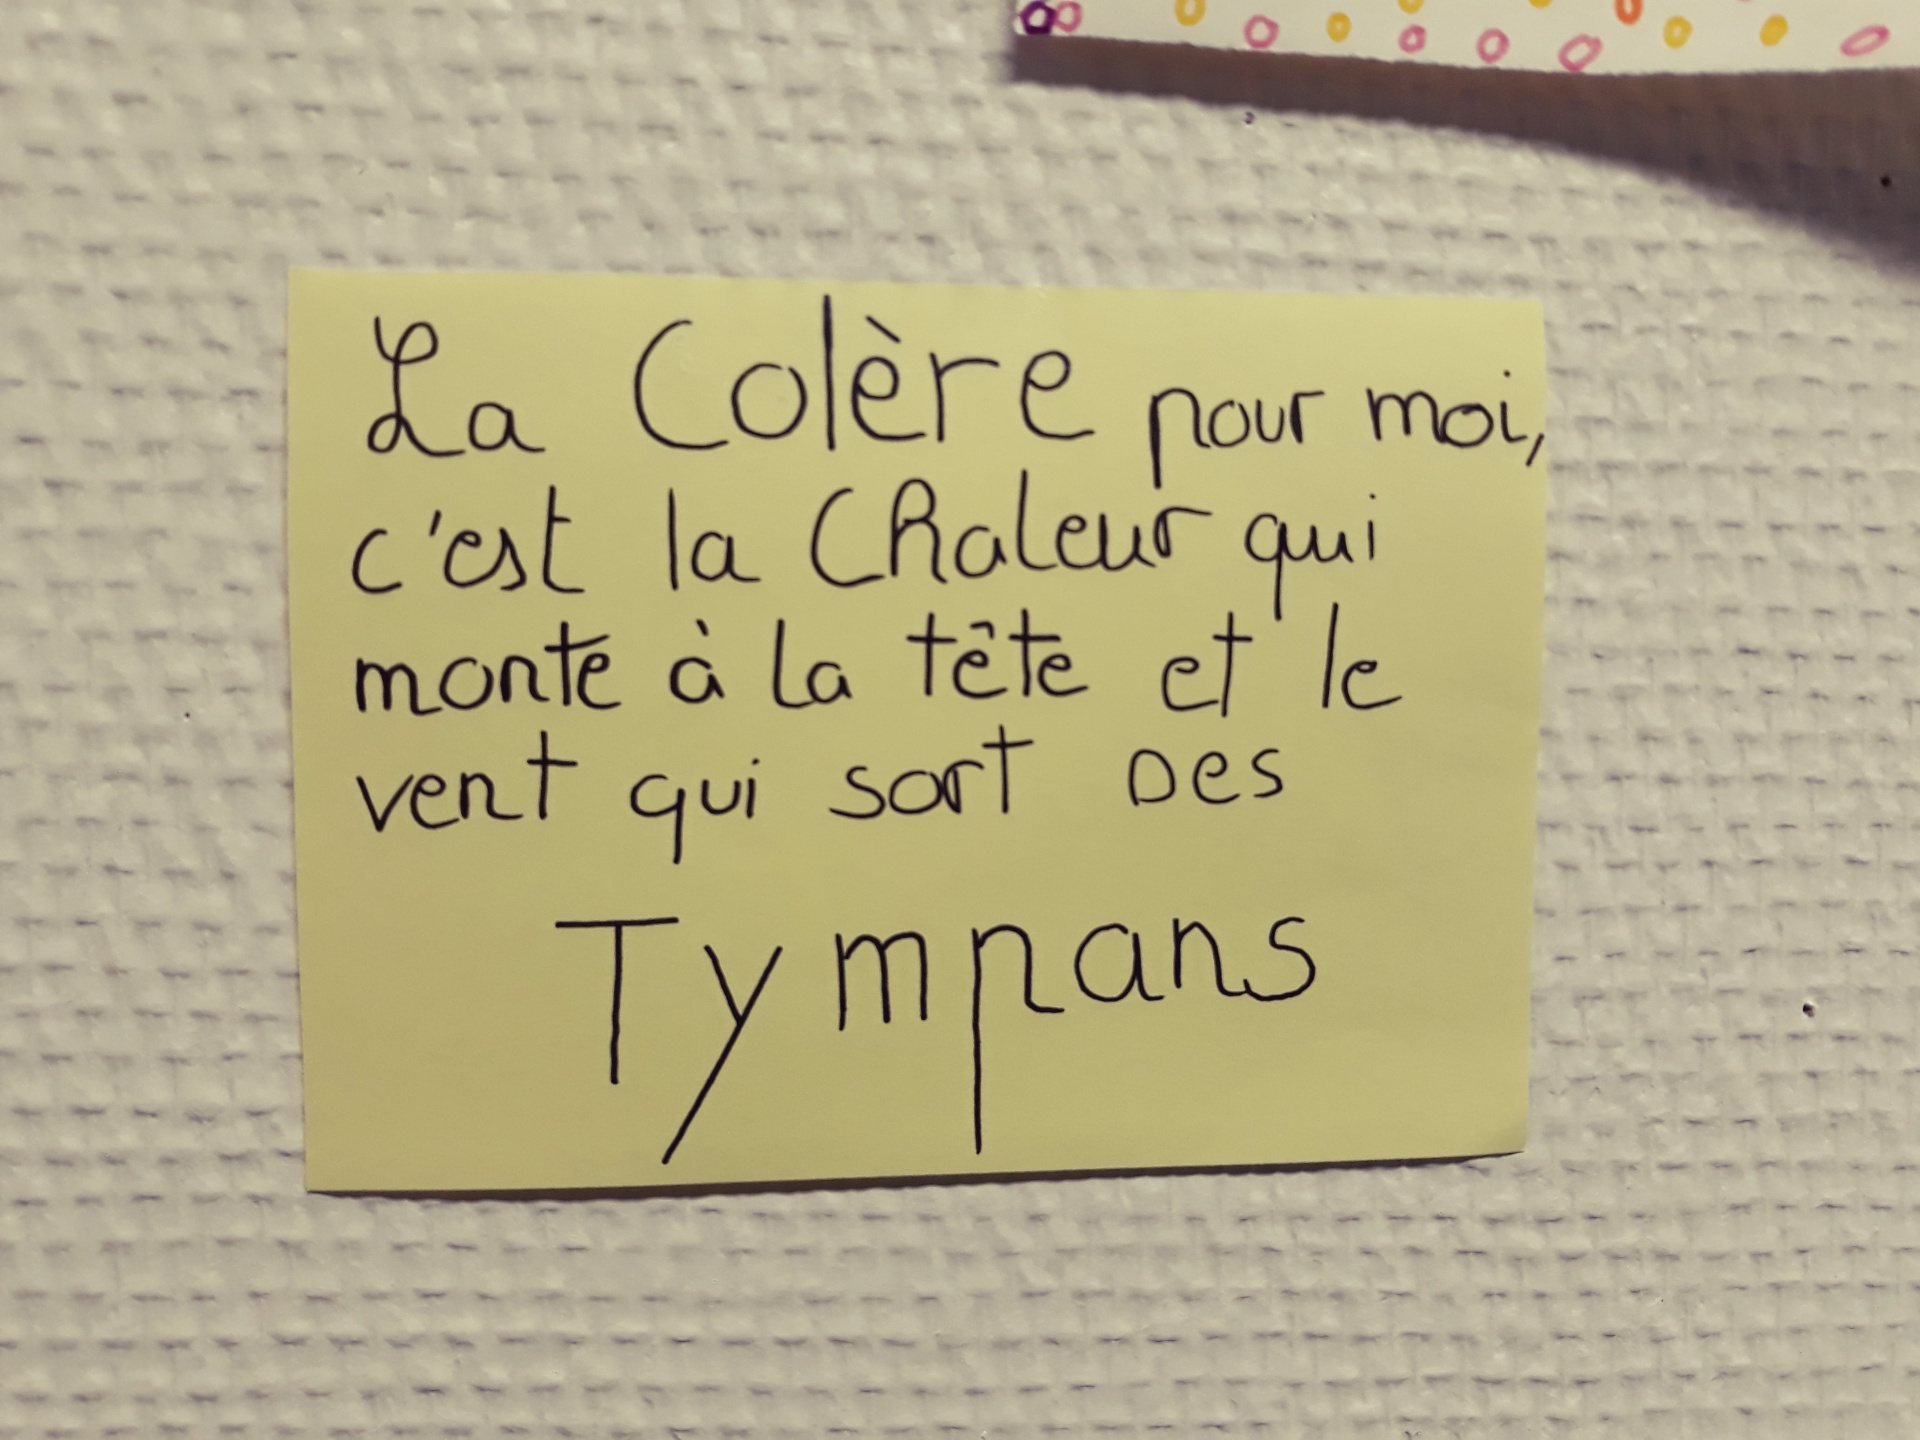 La Colère pour moi,
c'est la Chaleur qui
monte à la tête et le
vent qui sort Des
Tympans